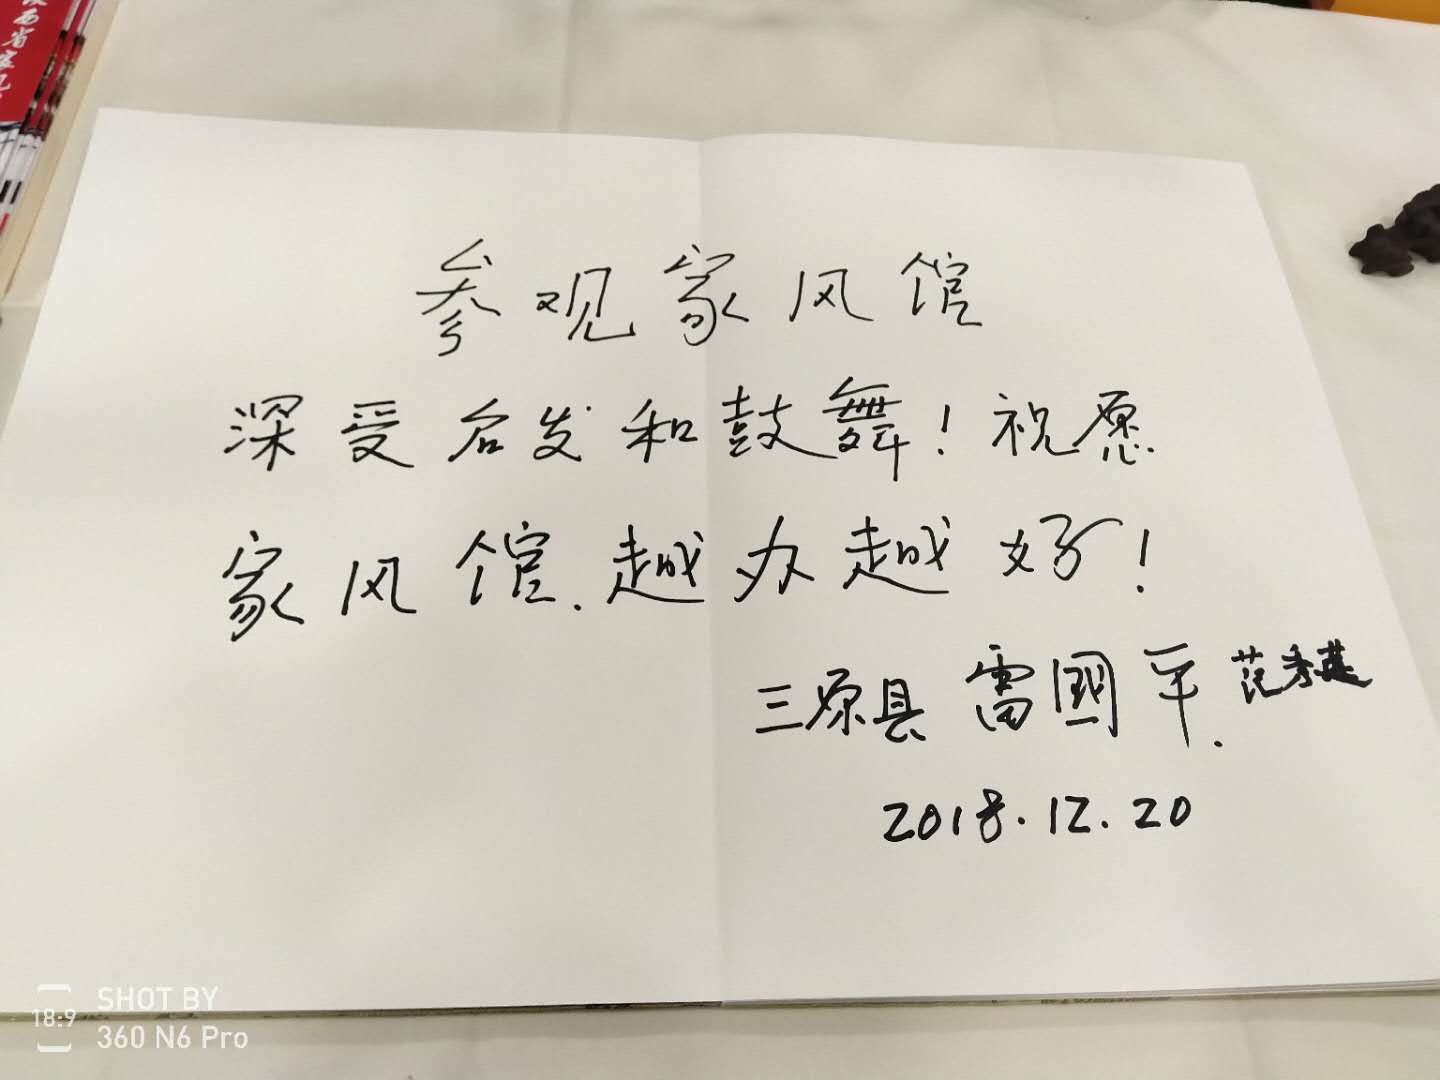 陕西省家风
参观家风馆
深受启发和鼓舞！祝愿
家风馆.越办越好！
三原县 雷國平. 范秀莲
2018.12.20
18:9
SHOT BY
360 N6 Pro